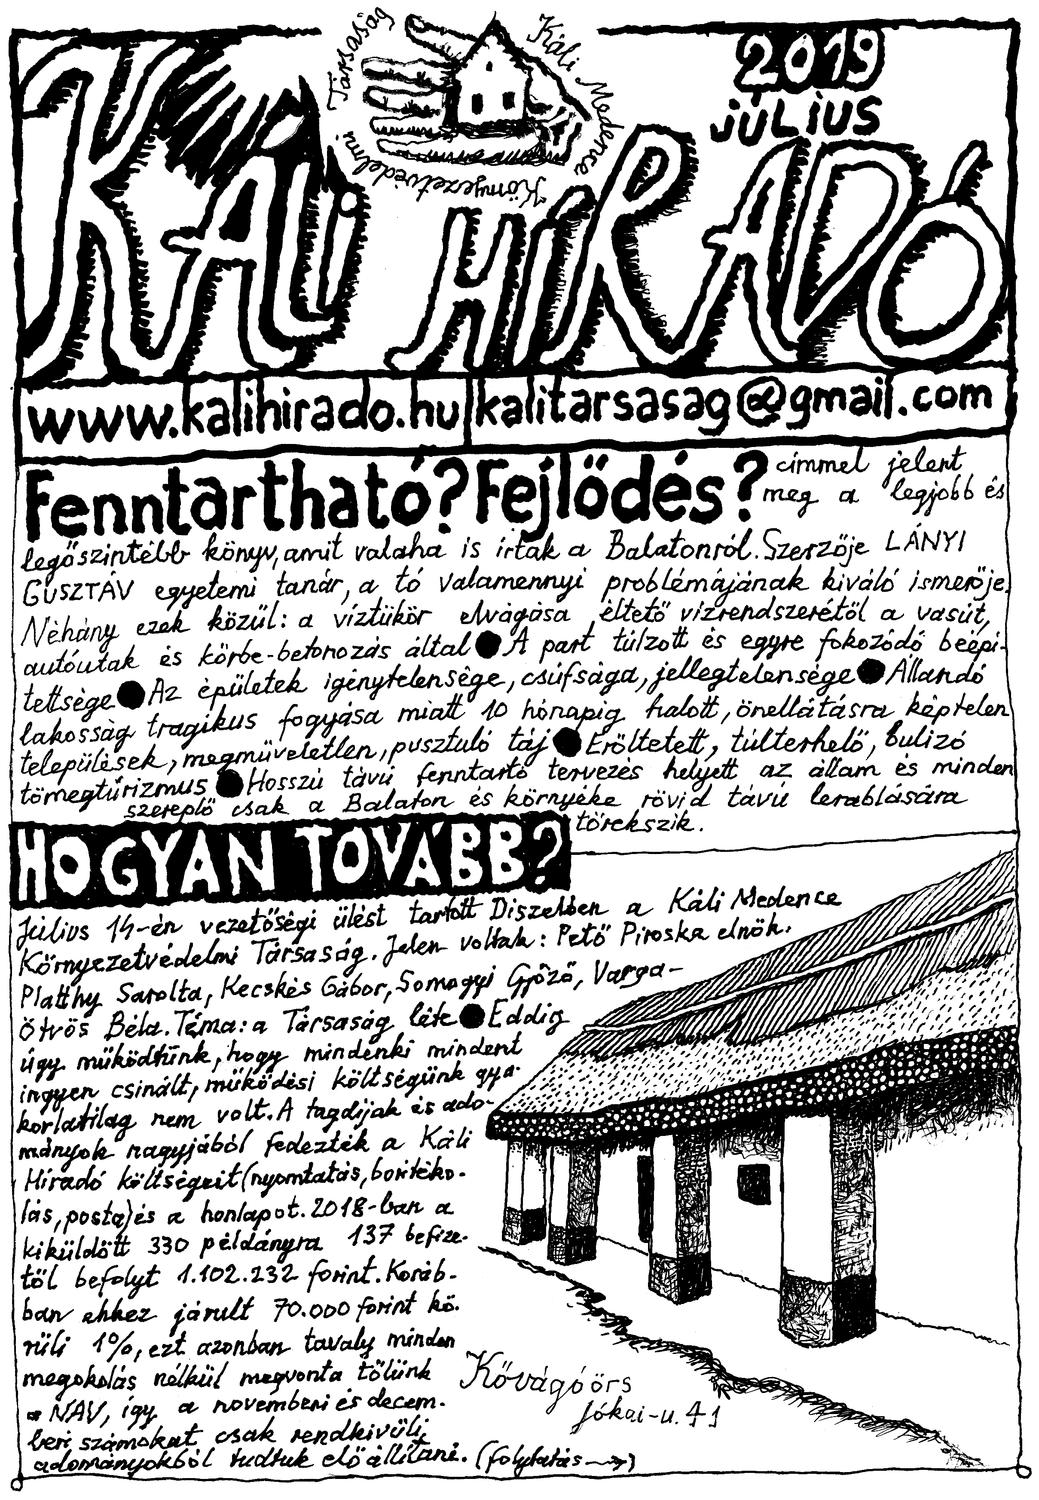 Káli Medence Környezetvédelmi Társaság
2019
JÚLIUS
KÁLI HÍRADÓ
www.kalihirado.hu kalitarsasag@gmail.com
Fenntartható? Fejlődés? címmel jelent
meg a legjobb és
legőszintébb könyv, amit valaha is írtak a Balatonról. Szerzője LÁNYI
GUSZTÁV egyetemi tanár, a tó valamennyi problémájának kiváló ismerője.
Néhány ezek közül: a víztükör elvágása éltető vízrendszerétől a vasút,
autóutak és körbe-betonozás által ● A part túlzott és egyre fokozódó beépí-
tettsége ● Az épületek igénytelensége, csúfsága, jellegtelensége ● Állandó
lakosság tragikus fogyása miatt 10 hónapig halott, önellátásra képtelen
települések, megműveletlen, pusztuló táj ● Erőltetett, túlterhelő, bulizó
tömegtúrizmus ● Hosszú távú fenntartó tervezés helyett az állam és minden
szereplő csak a Balaton és környéke rövid távú lerablására
törekszik.
HOGYAN TOVÁBB?
Július 14-én vezetőségi ülést tartott Diszelben a Káli Medence
Környezetvédelmi Társaság. Jelen voltak: Pető Piroska elnök,
Platthy Sarolta, Kecskés Gábor, Somogyi Győző, Varga-
Ötvös Béla. Téma: a Társaság léte ● Eddig
úgy működtünk, hogy mindenki mindent
ingyen csinált, működési költségünk gya-
korlatilag nem volt. A tagdíjak és ado-
mányok nagyjából fedezték a Káli
Híradó költségeit (nyomtatás, boritéko-
lás, posta) és a honlapot. 2018-ban a
kiküldött 330 példányra 137 befize-
től befolyt 1.102.232 forint. Koráb-
ban ehhez járult 70.000 forint kö-
rüli 1%, ezt azonban tavaly minden
megokolás nélkül megvonta tőlünk
a NAV, így a novemberi és decem-
beri számokat csak rendkivüli
adományokból tudtuk előállítani. (folytatás →)
Kővágóörs
Jókai-u. 41